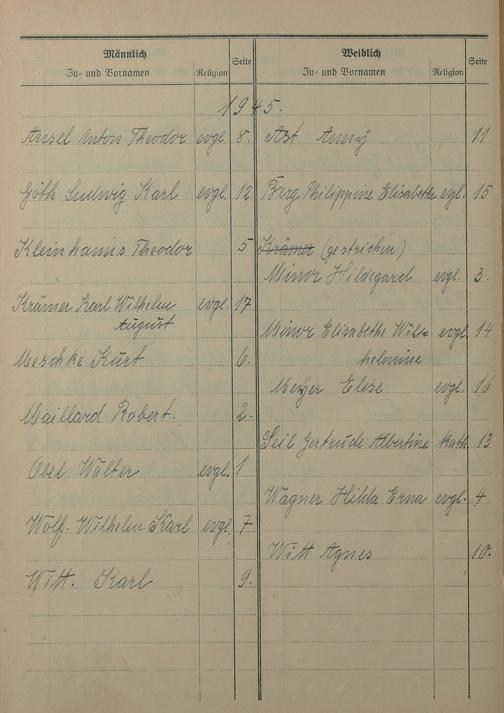 Männlich
Zu- und Vornamen Religion Seite
Weiblich
Zu- und Vornamen Religion Seite
1945.
Ansel Anton Theodor evgl 8.
Göth Ludwig Karl evgl. 12
Kleinhanns Theodor 5
Krämer Karl Wilhelm evgl. 17
August
Meschke Kurt 6.
Maillard Robert. 2.
Obel Walter evgl. 1
Wolf. Wilhelm Karl evgl. 7
Witt. Karl 9.
Ast Anny 11
Berg Philippine Elisabethe evgl. 15
Krämer (gestrichen)
Minor Hildegard evgl. 3.
Minor Elisabethe Wil- evgl. 14
helmine
Meyer Elise evgl. 16
Seil Gertrude Albertine Kath. 13
Wagner Hilda Erna evgl. 4
Witt Agnes 10.